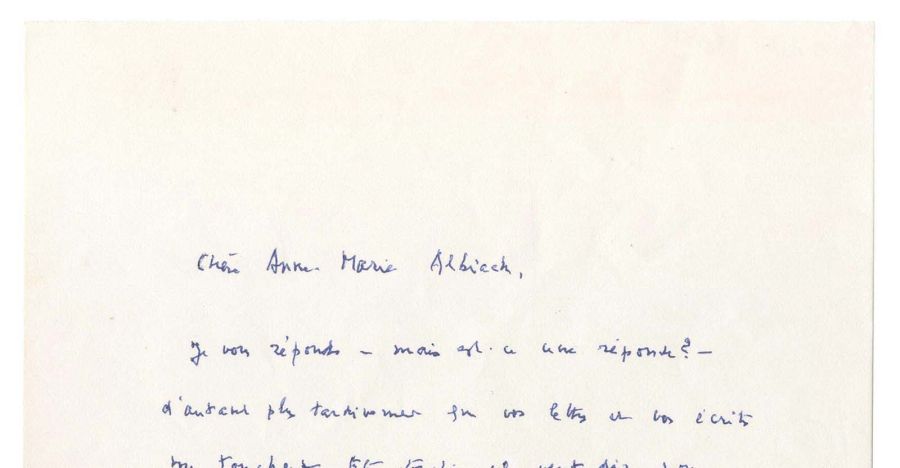 Chère Anne-Marie Albiach,
Je vous réponds – mais est-ce une réponse? –
d'autant plus tardivement que vos lettres et vos écrits
me touchent